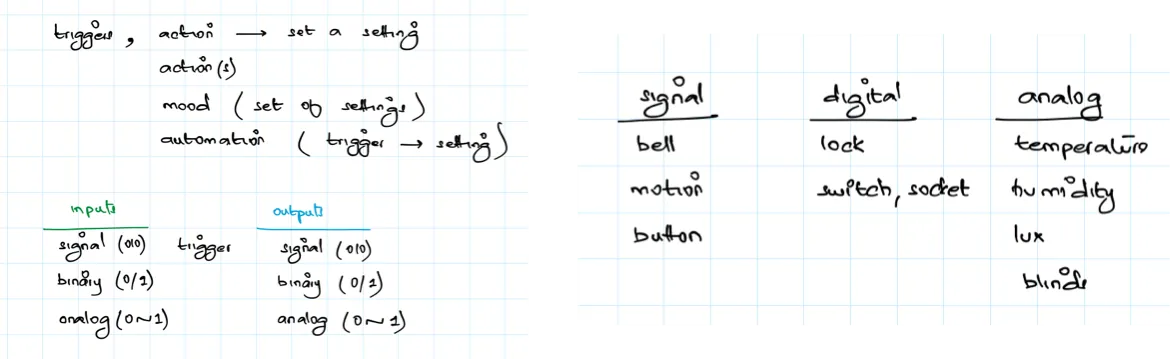 triggers, action → set a setting
action(s)
mood ( set of settings )
automation ( trigger → setting )
inputs outputs
signal (010) trigger signal (010)
binary (0/1) binary (0/1)
analog (0~1) analog (0~1)
signal digital analog
bell lock temperature
motion switch, socket humidity
button lux
blinds